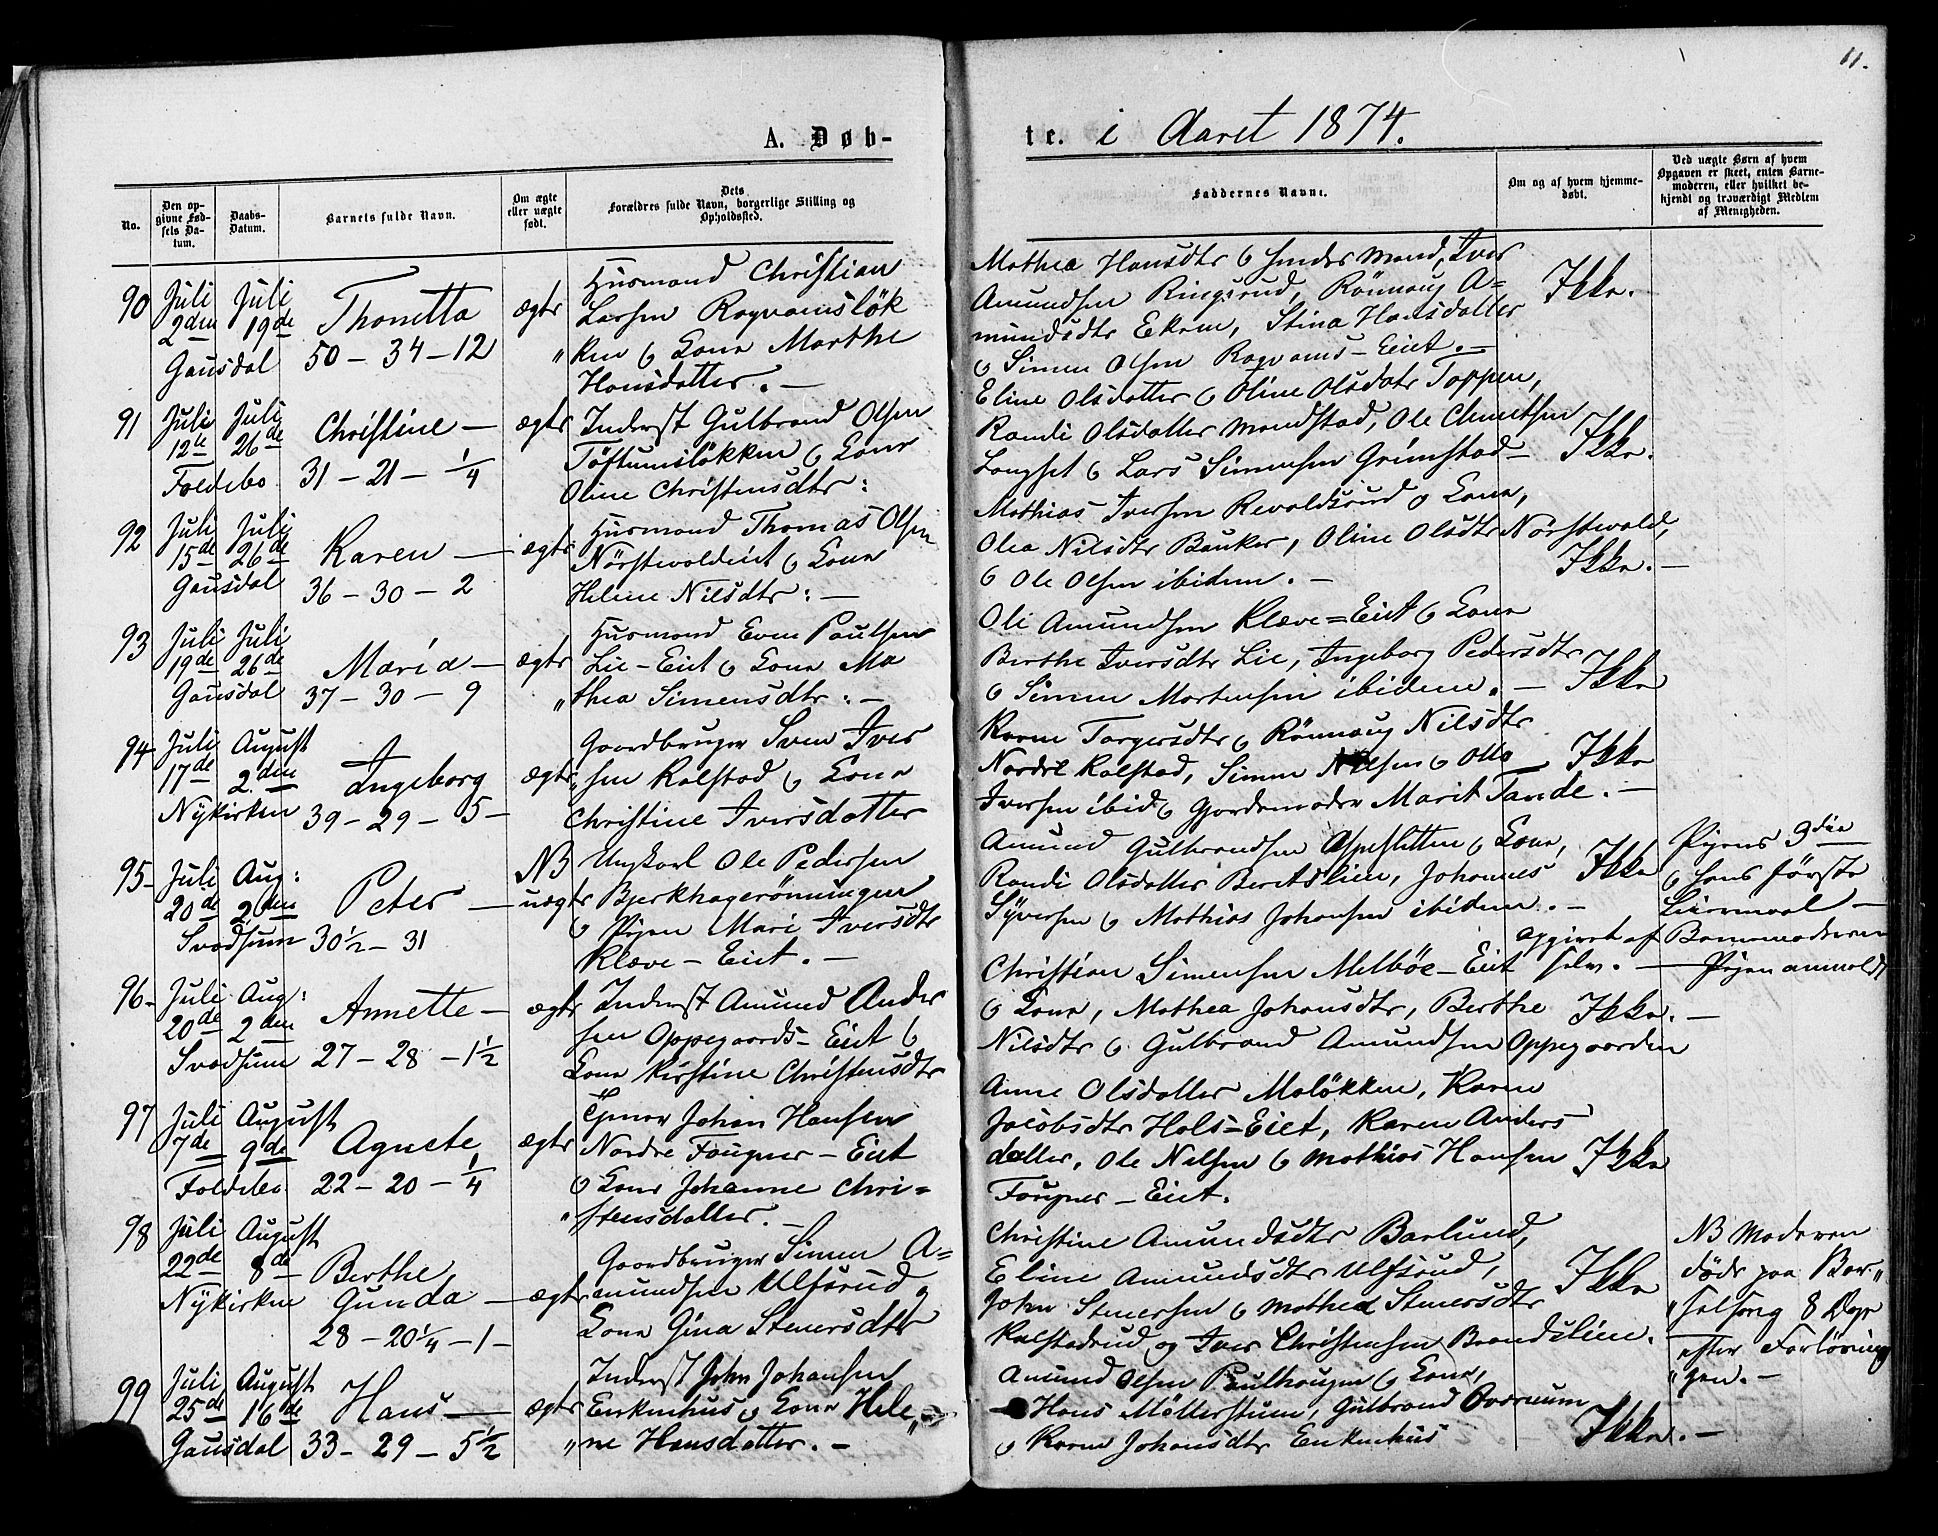 11.
A. Døb-
te. i Aaret 1874.
No.
Den op-
givne Fød-
sels Da-
tum.
Daabs-
Datum.
Barnets fulde Navn.
Om ægte
eller uægte
født.
Dets
Forældres fulde Navn, borgerlige Stilling og
Opholdssted.
Faddernes Navne.
Om og af hvem hjemme-
døbt.
Ved uægte Børn af hvem
Opgaven er skeet, enten Barne-
moderen, eller hvilket be-
kjendt og troværdigt Medlem
af Menigheden.
90
Juli
2den
Gausdal
Juli
19de
Thonetta
50 - 34 - 12
ægte
Husmand Christian
Larsen Rogvamsløk
"ken & Kone Marthe
Hansdatter. -
Mathea Hansdtr & hendes Mand, Iver
Amundsen Ringsrud, Rønnaug A=
mundsdtr Ekern, Stina Hansdatter
& Simen Olsen Rogvams-Eiet. -
Ikke.
91
Juli
12te
Foldebo
Juli
26de
Christine -
31 - 21 - 1/4
ægte
Inderst Gulbrand Olsen
Toftumsløkken & Kone
Oline Christensdtr:
Eline Olsdatter & Oline Olsdatr Toppen,
Randi Olsdatter Mandstad, Ole Clemetsen
Langset & Lars Simensen Grimstad -
Ikke.
92
Juli
15de
Gausdal
Juli
26de
Karen -
36 - 30 - 2
ægte
Husmand Thomas Olsen
Nørstevoldeiet & Kone
Helene Nilsdtr: -
Mathias Iversen Revoldsrud & Kone,
Olea Nilsdtr Bauker, Oline Olsdtr Nørstevold,
& Ole Olsen ibidem. -
Ikke. -
93
Juli
19de
Gausdal
Juli
26de
Maria -
37 - 30 - 9
ægte
Husmand Even Paulsen
Lie-Eiet & Kone Ma
"thea Simensdtr: -
Oli Amundsen Klæve=Eiet & Kone
Berthe Iversdtr Lie, Ingeborg Pedersdtr
& Simen Mortensen ibidem. -
Ikke
94
Juli
17de
Nykirken
August
2den
Ingeborg
39 - 29 - 5 -
ægte
Gaardbruger Sven Iver
"sen Kalstad & Kone
Christine Iversdatter
Karen Torgersdtr & Rønnaug Nilsdtr
Nordre Kalstad, Simen Nilsen & Otto
Iversen ibid & Gjordemoder Marit Tande. -
Ikke
95 -
Juli
20de
Svadsum
Aug:
2den
Peter -
30 1/2 - 31
NB
uægte
Ungkarl Ole Pedersen
Bjerkhagerønningen
& Pigen Mari Iversdtr
Klæve - Eiet. -
Amund Gulbrandsen Aspesletten & Kone,
Randi Olsdatter Beritslien, Johannes
Syversen & Mathias Johansen ibidem. -
Ikke
Pigens 3die
& hans første
Leiermaal -
opgivet af Barnemoderen
selv. - Pigen anmeldt
96 -
Juli
20de
Svadsum
Aug:
2den
Annette -
27 - 28 - 1 1/2
ægte
Inderst Amund Ander
sen Oppegaards-Eiet &
Kone Kirstine Christensdtr
Christian Simensen Melbøe - Eiet
& Kone, Mathea Johansdtr, Berthe
Nilsdtr & Gulbrand Amundsen Oppegaarden
Ikke. -
97
Juli
7de
Foldebo
August
9de
Agnete
22 - 20 - 1/4
ægte
Johan Hansen
Nordre Fougner - Eiet
& Kone Johanne Chri=
"stensdatter. -
Anne Olsdatter Moløkken, Karen
Jacobsdtr Hols-Eiet, Karen Anders
datter, Ole Nilsen & Mathias Hansen
Fougner - Eiet.
Ikke
98
Juli
22de
Nykirken
August
8de
Berthe
Gunda -
28 - 20 1/4 - 1 -
ægte
Gaardbruger Simen A=
mundsen Ulfsrud &
Kone Gina Stenersdtr
Christine Amundsdtr Barlund,
Eline Amundsdtr Ulfsrud,
John Stenersen & Mathea Stenersdtr
Kalstadrud og Iver Christensen Brandslien.
Ikke
NB Moderen
døde paa Bar"
"selseng 8 Dage
efter Forløsnin
"gen. -
99
Juli
25de
Gausdal
August
16de
Hans -
33 - 29 - 5 1/2
ægte
Inderst John Johansen
Enkenhus & Kone Hele"
"ne Hansdatter. -
Amund Olsen Paulhougen & Kone,
- Hans Møllerstuen, Gulbrand
& Karen Johansdtr Enkenhus
Ikke. -